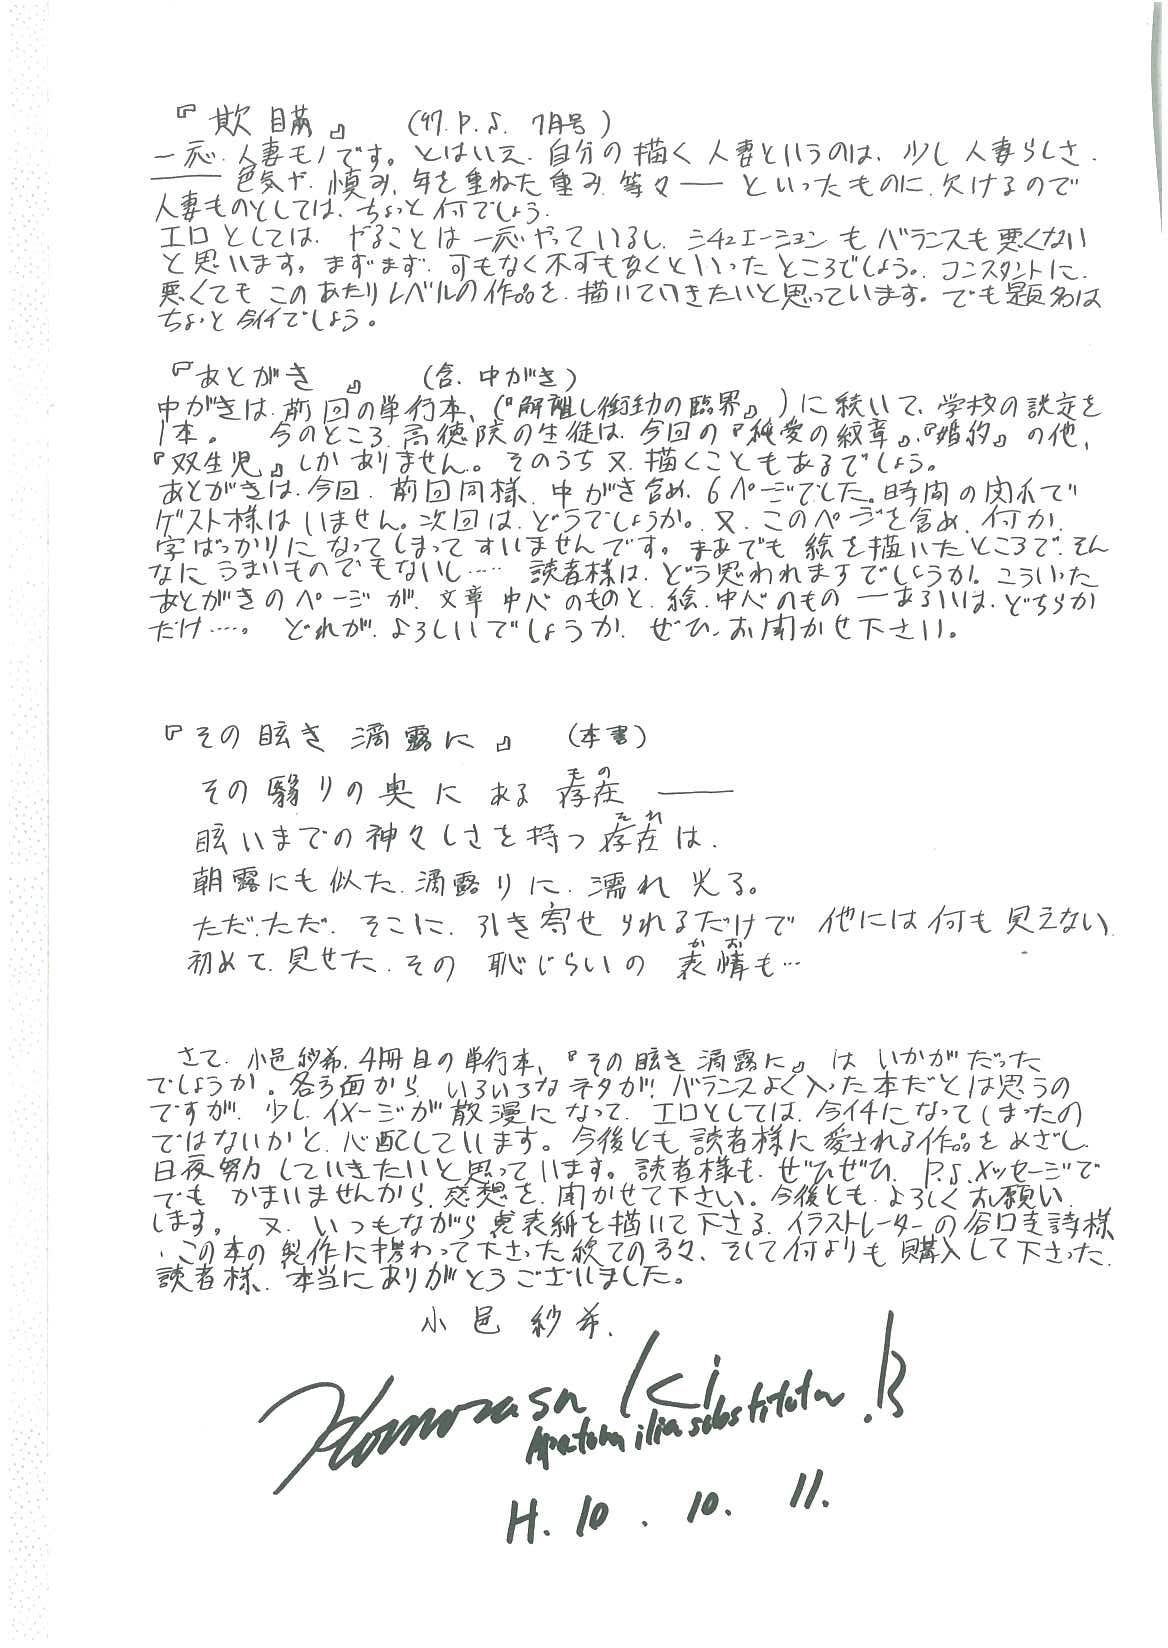 『欺瞞』 ('97.P.S. 7月号)
一応、人妻モノです。とはいえ、自分の描く人妻というのは、少し人妻らしさ、
――色気や、慎み、年を重ねた重み、等々――といったものに、欠けるので
人妻ものとしては、ちょっと何でしょう。
エロとしては、やることは一応やっているし、シチュエーションもバランスも悪くない
と思います。まずまず、可もなく不可もなくといったところでしょう。コンスタントに、
悪くてもこのあたりレベルの作品を、描いていきたいと思っています。でも題名は
ちょっと今イチでしょう。
『あとがき』 (含、中がき)
中がきは、前回の単行本、(『解離し衝動の臨界』)に続いて、学校の設定を
1本。 今のところ、高徳院の生徒は、今回の『純愛の紋章』、『婚約』の他、
『双生児』しかありません。そのうち又、描くこともあるでしょう。
あとがきは、今回、前回同様、中がき含め、6ページでした。時間の関係で
ゲスト様はいません。次回は、どうでしょうか。又、このページを含め、何か、
字ばっかりになってしまってすいませんです。まあでも絵を描いたところで、そん
なにうまいものでもないし…… 読者様は、どう思われますでしょうか。こういった
あとがきのページが、文章中心のものと、絵、中心のもの―あるいは、どちらか
だけ……。 どれが、よろしいでしょうか、ぜひ、お聞かせ下さい。
『その眩き滴露に』 (本書)
その翳りの奥にある存在(もの)――
眩いまでの神々しさを持つ存在(それ)は、
朝露にも似た、滴露りに、濡れ光る。
ただ、ただ、そこに、引き寄せられるだけで 他には何も見えない、
初めて、見せた、その恥じらいの表情(かお)も…
さて、小邑紗希、4冊目の単行本、『その眩き滴露に』はいかがだった
でしょうか。各方面から、いろいろなネタが、バランスよく入った本だとは思うの
ですが、少し、イメージが散漫になって、エロとしては、今イチになってしまったの
ではないかと、心配しています。今後とも、読者様に愛される作品をめざし、
日夜努力していきたいと思っています。読者様も、ぜひぜひ、P.S.メッセージで
でも かまいませんから、感想を、聞かせて下さい。今後とも、よろしくお願い、
します。 又、いつもながら裏表紙を描いて下さる、イラストレーターの谷口 詩様、
、この本の製作に携わって下さった総ての方々、そして何よりも購入して下さった、
読者様、本当にありがとうございました。
小邑 紗希.
Komurasa Ki.B
Apatura ilia substituta
H.10.10.11.